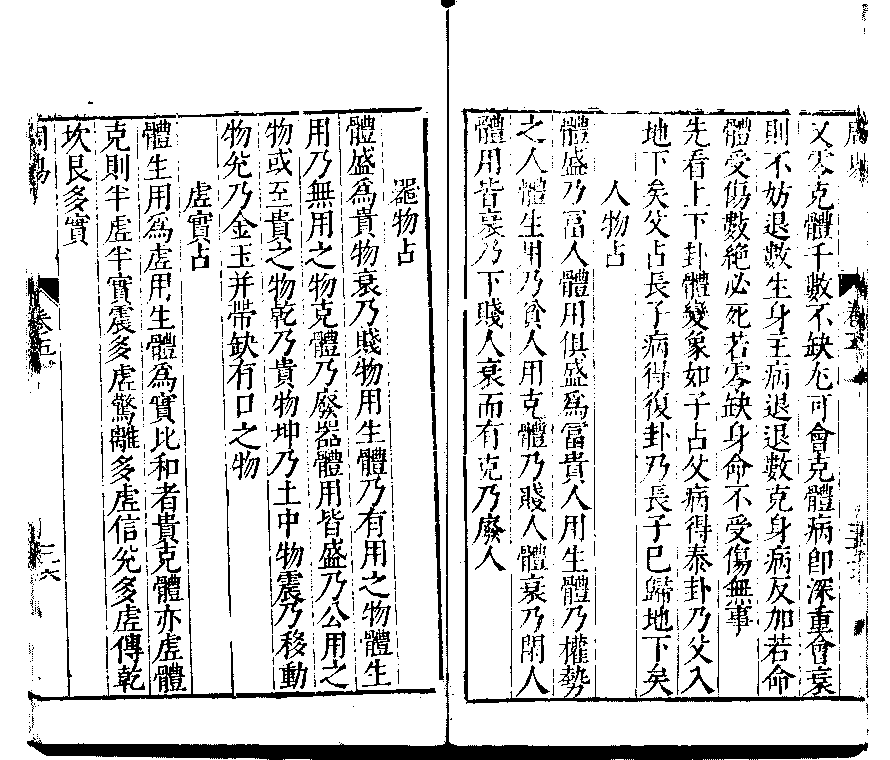 又零克體千數不缺尤可會克體病卽深重會衰
則不妨退數生身主病退退數克身病反加若命
體受傷數絶必死若零缺身命不受傷無事
先看上下卦體變象如子占父病得泰卦乃父入
地下矣父占長子病得復卦乃長子已歸地下矣
人物占
體盛乃富人體用俱盛爲富貴人用生體乃權勢
之人體生用乃貧人用克體乃賤人體衰乃閑人
體用皆衰乃下賤人衰而有克乃廢人
器物占
體盛爲貴物衰乃賤物用生體乃有用之物體生
用乃無用之物克體乃廢器體用皆盛乃公用之
物或至貴之物乾乃貴物坤乃土中物震乃移動
物兌乃金玉并帶缺有口之物
虛實占
體生用爲虛用生體爲實比和者貴克體亦虛體
克則半虛半實震多虛驚離多虛信兌多虛傳乾
坎艮多實
卷五
三六